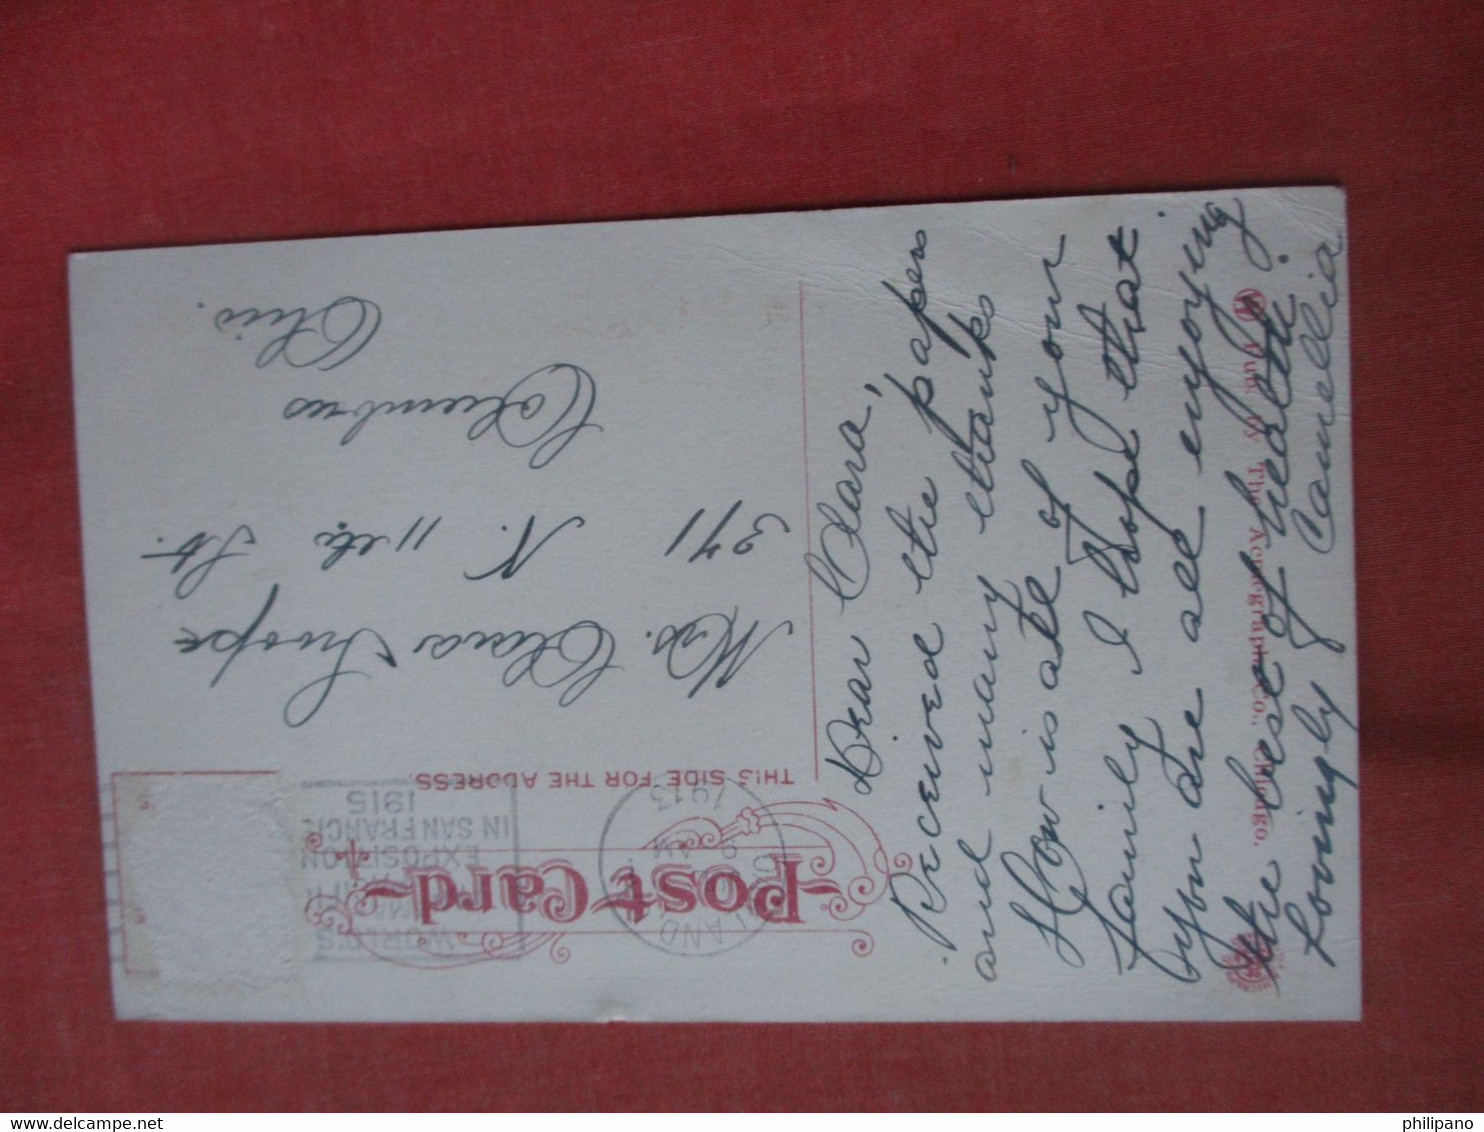 Post Card
THIS SIDE FOR THE ADDRESS.
1913
WORLD'S
EXPOSITION
IN SAN FRANCI
1915
Mrs. Clara
371 N. 11th St.
Columbus
Ohio.
Dear Clara,
Received the papers
and many thanks
How is all of your
family I hope that
you are all enjoying
the best of health.
Lovingly Camellia
Pub. by The Acmegraph Co., Chicago.
philipano